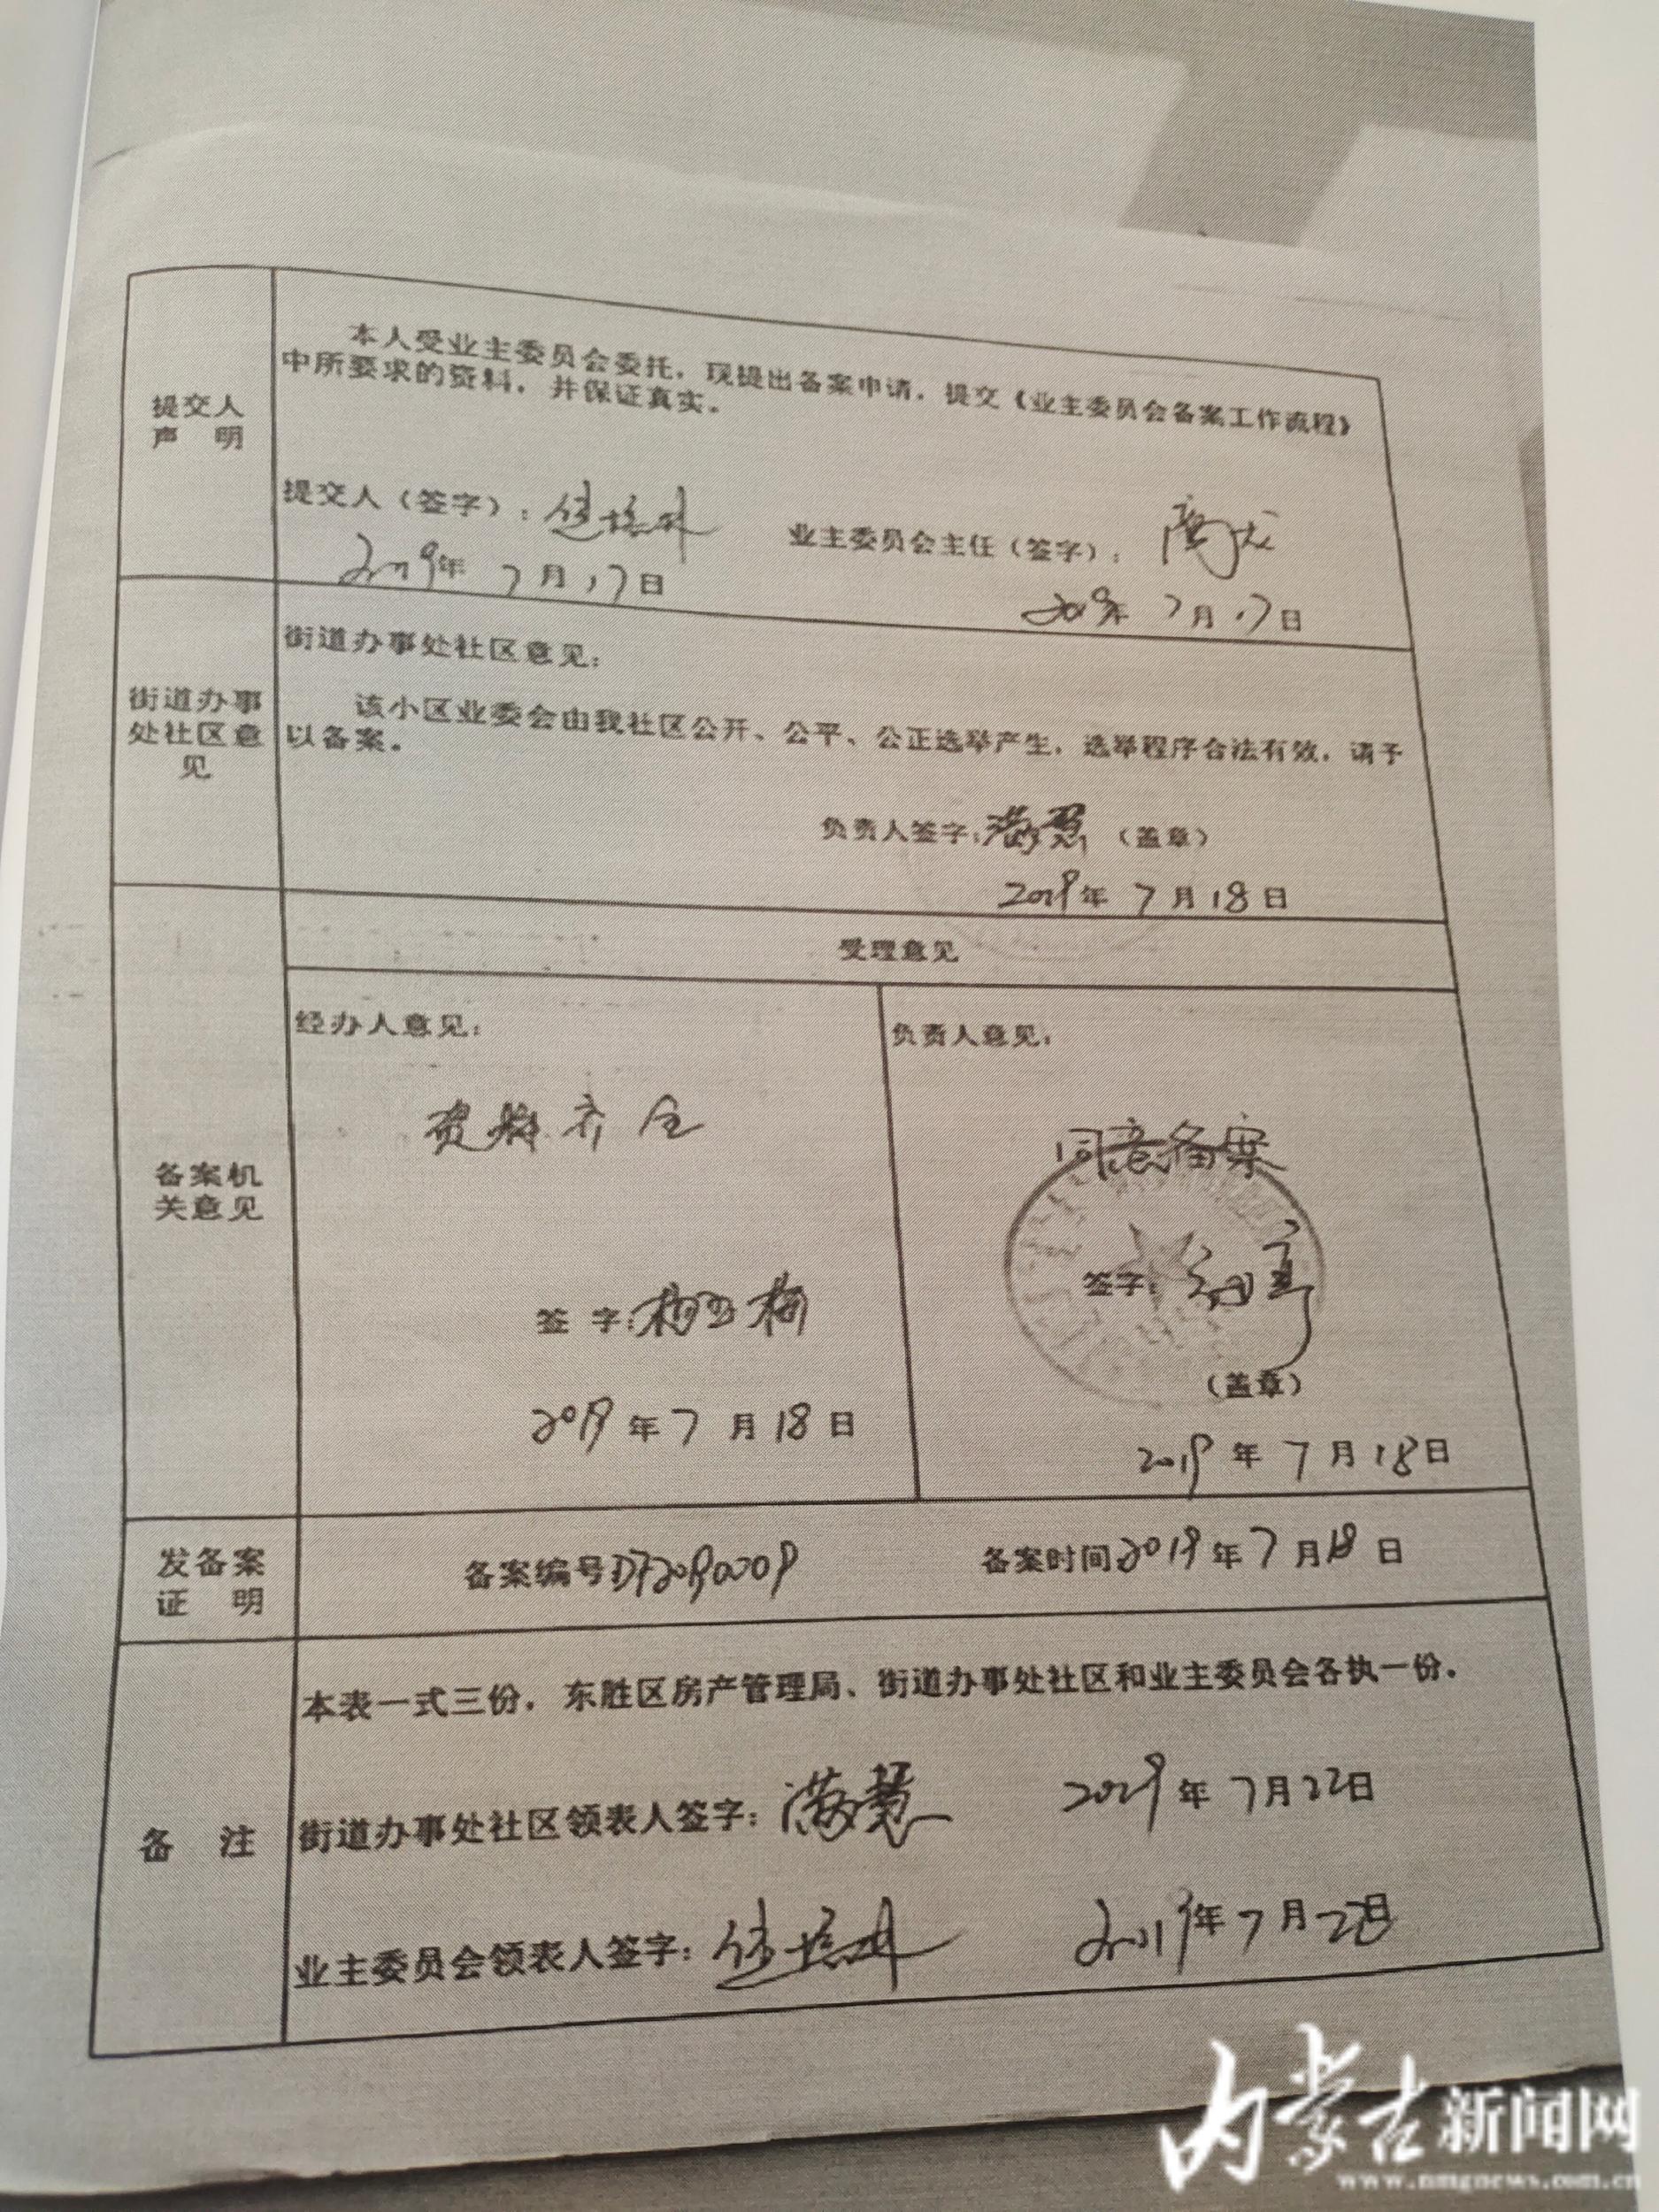 本人受业主委员会委托，现提出备案申请，提交《业主委员会备案工作流程》
中所要求的资料，并保证真实。
提交人
声 明
提交人（签字）：
业主委员会主任（签字）：
2019年 7月17日
2019年 7月17日
街道办事处社区意见：
街道办事
处社区意
见
该小区业委会由我社区公开、公平、公正选举产生，选举程序合法有效，请予
以备案。
负责人签字：满慧（盖章）
2019年 7月18日
受理意见
备案机
关意见
经办人意见：
资料齐全
签 字：
2019年7月18日
负责人意见：
同意备案
签字：
（盖章）
2019年7月18日
发备案
证 明
备案编号
备案时间2019年7月18日
备 注
本表一式三份，东胜区房产管理局、街道办事处社区和业主委员会各执一份。
街道办事处社区领表人签字：满慧 2019年7月22日
业主委员会领表人签字： 2019年7月22日
内蒙古新闻网
www.nmgnews.com.cn